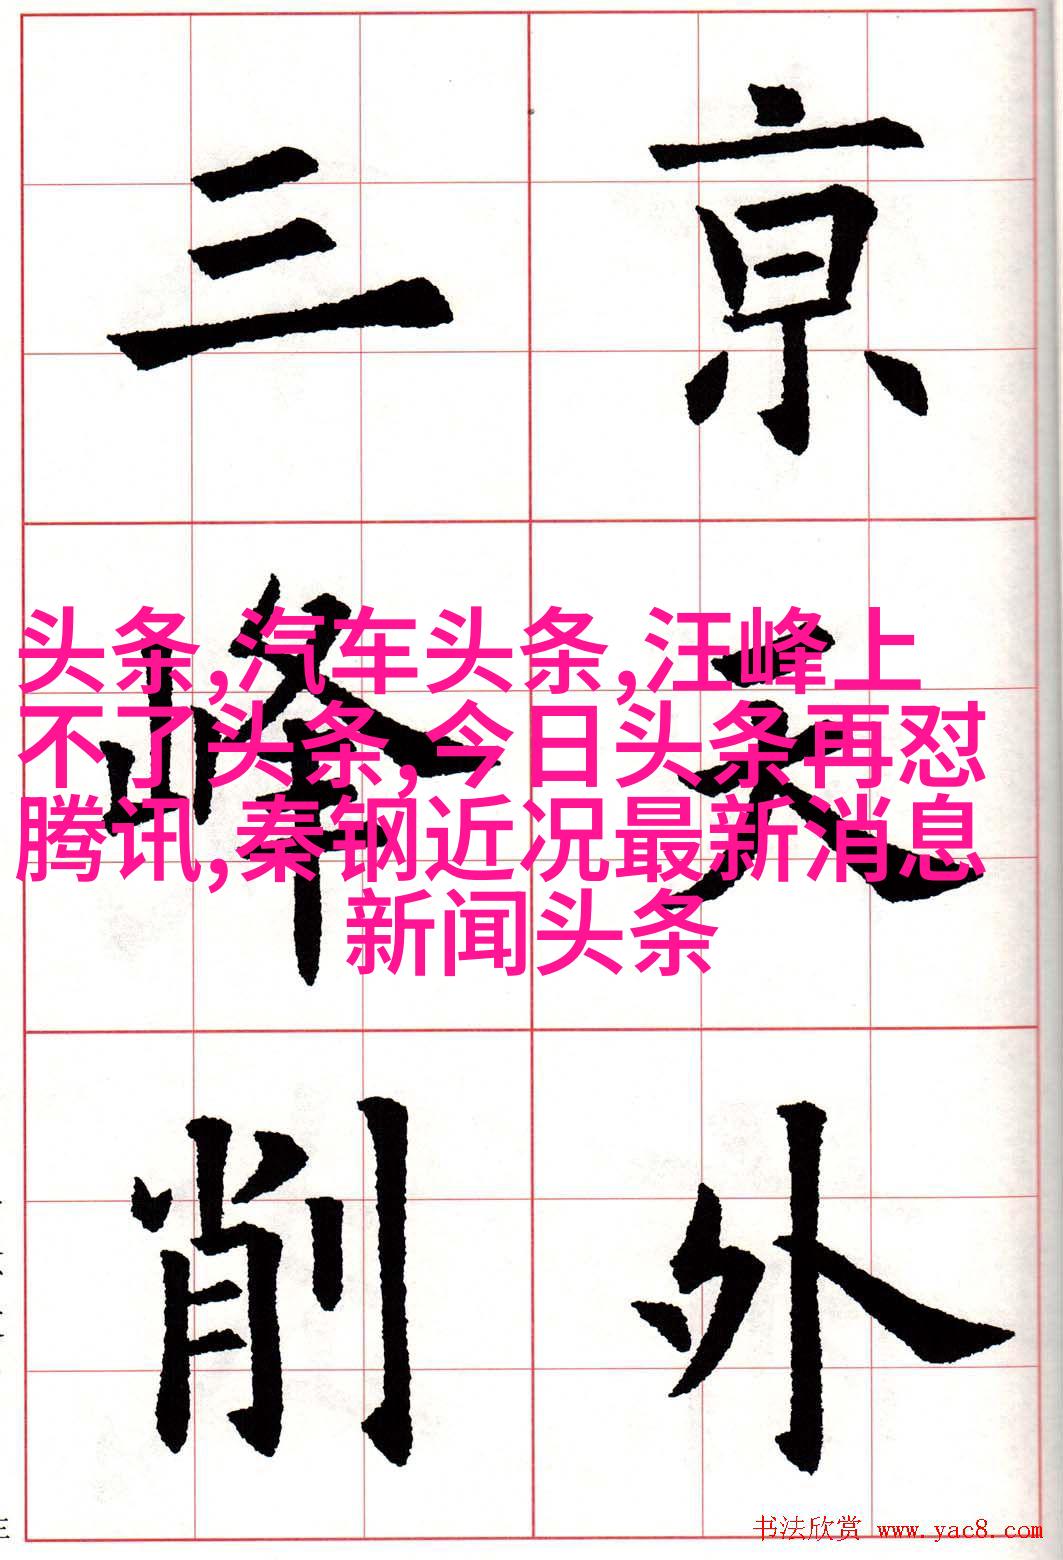 亰天外
三峰削
头条,汽车头条,汪峰上
不了头条,今日头条再怼
腾讯,秦钢近况最新消息
新闻头条
书法欣赏 www.yac8.com